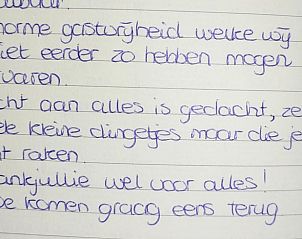 norme gastvrijheid welke wij
iet eerder zo hebben mogen
varen.
cht aan alles is gedacht, ze
le kleine dingetjes maar die je
t raken.
ankjullie wel voor alles!
e komen graag eens terug